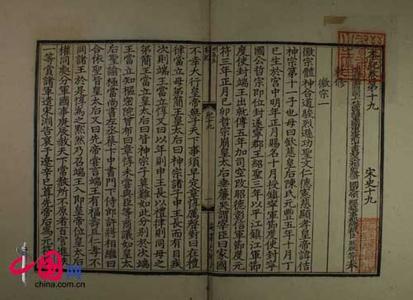 本紀第十九 宋史十九
徽宗
徽宗體神合道駿烈遜功聖文仁德憲慈顯孝皇帝諱佶
神宗第十一子也母曰欽慈皇后陳氏元豐五年十月丁
巳生於宮中明年正月賜名十月授鎮寧軍節度使封寧
國公哲宗即位封遂寧郡王紹聖三年以平江鎮江軍節
度使封端王出就傅五年加司空改昭德彰信軍節度元
符三年正月己卯哲宗崩皇太后垂簾哭謂宰臣曰家國
不幸大行皇帝無子天下事須早定章惇厲聲對曰在禮
律當立母弟簡王皇太后曰神宗諸子申王長而有目疾
次則端王當立惇又曰以年則申王長以禮律則同母之
弟簡王當立皇太后曰皆神宗子莫難如此分別於次端
王當立知樞密院曾布曰章惇未嘗與臣等商議如皇太
后聖諭極當尚書左丞蔡卞中書門下侍郎許將相繼曰
合依聖旨皇太后又曰先帝嘗言端王有福壽且仁孝不
同諸王於是惇為之默然乃召端王入即皇帝位皇太后
權同處分軍國事庚辰赦天下常赦所不原者百官進秩
一等賞諸軍遣宋淵告哀于遼辛巳尊先帝后為元符
中国网
china.com.cn